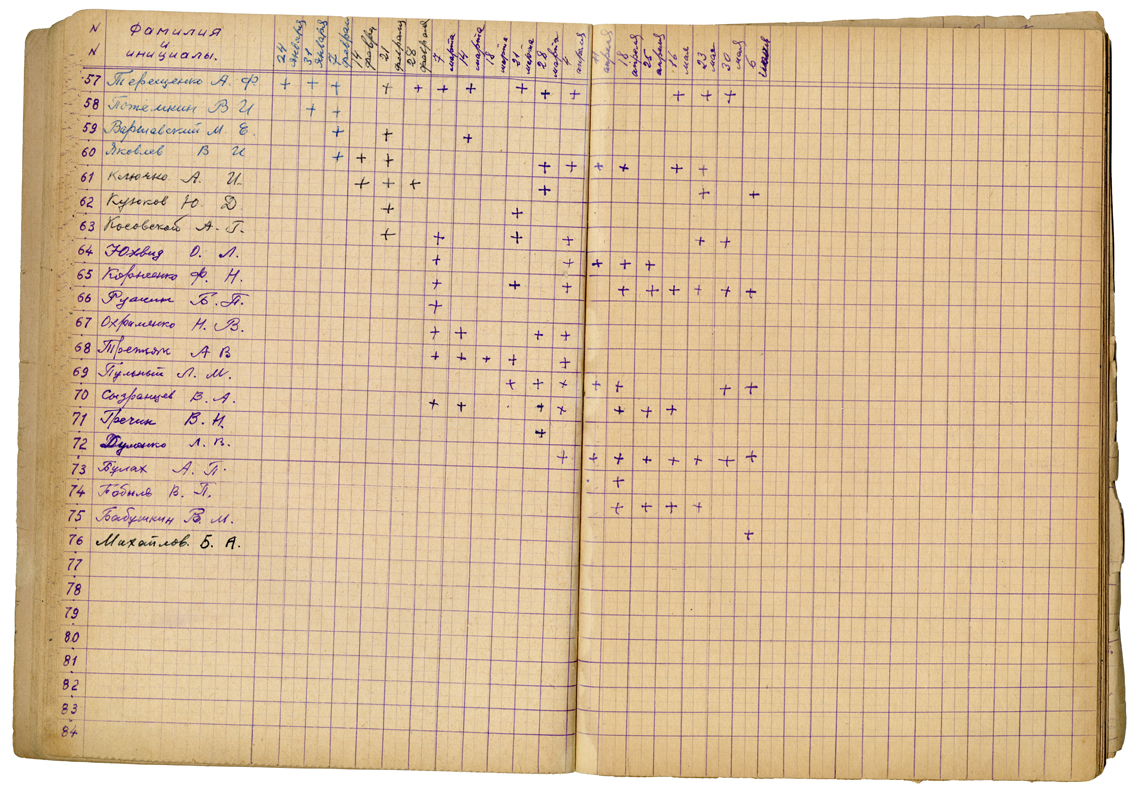 N N Фамилия и инициалы. 24 января 31 января 7 февраля 14 февр 21 февраля 28 февраля 7 марта 14 марта марта 21 марта 28 марта 4 апреля 11 апреля 18 апреля 25 апреля 16 мая 23 мая 30 мая 6 июня
57 Терещенко А. Ф. + + + + + + + + + + + + +
58 Потемкин В И + +
59 Варшавский М. Е. + + +
60 Яковлев В И + + + + + + + + +
61 Ключко А. И. + + + + + +
62 Кузюков Ю Д. + +
63 Косовской А. Г. + + + + + +
64 Юхвид О. Л. + + + + +
65 Корниенко Ф. Н. + + + + + + + + +
66 Рудкин Б. П. +
67 Охрименко Н. В. + + + +
68 Третьяк А В + + + + +
69 Пульный Л. М. + + + + + + +
70 Сызранцев В. А. + + + + + + +
71 Гречин В. Н. +
72 Дуленко Л. В. + + + + + + + +
73 Булах А. П. +
74 Бобыль В. П. + + + +
75 Бабушкин В. М. +
76 Михайлов. Б. А.
77
78
79
80
81
82
83
84